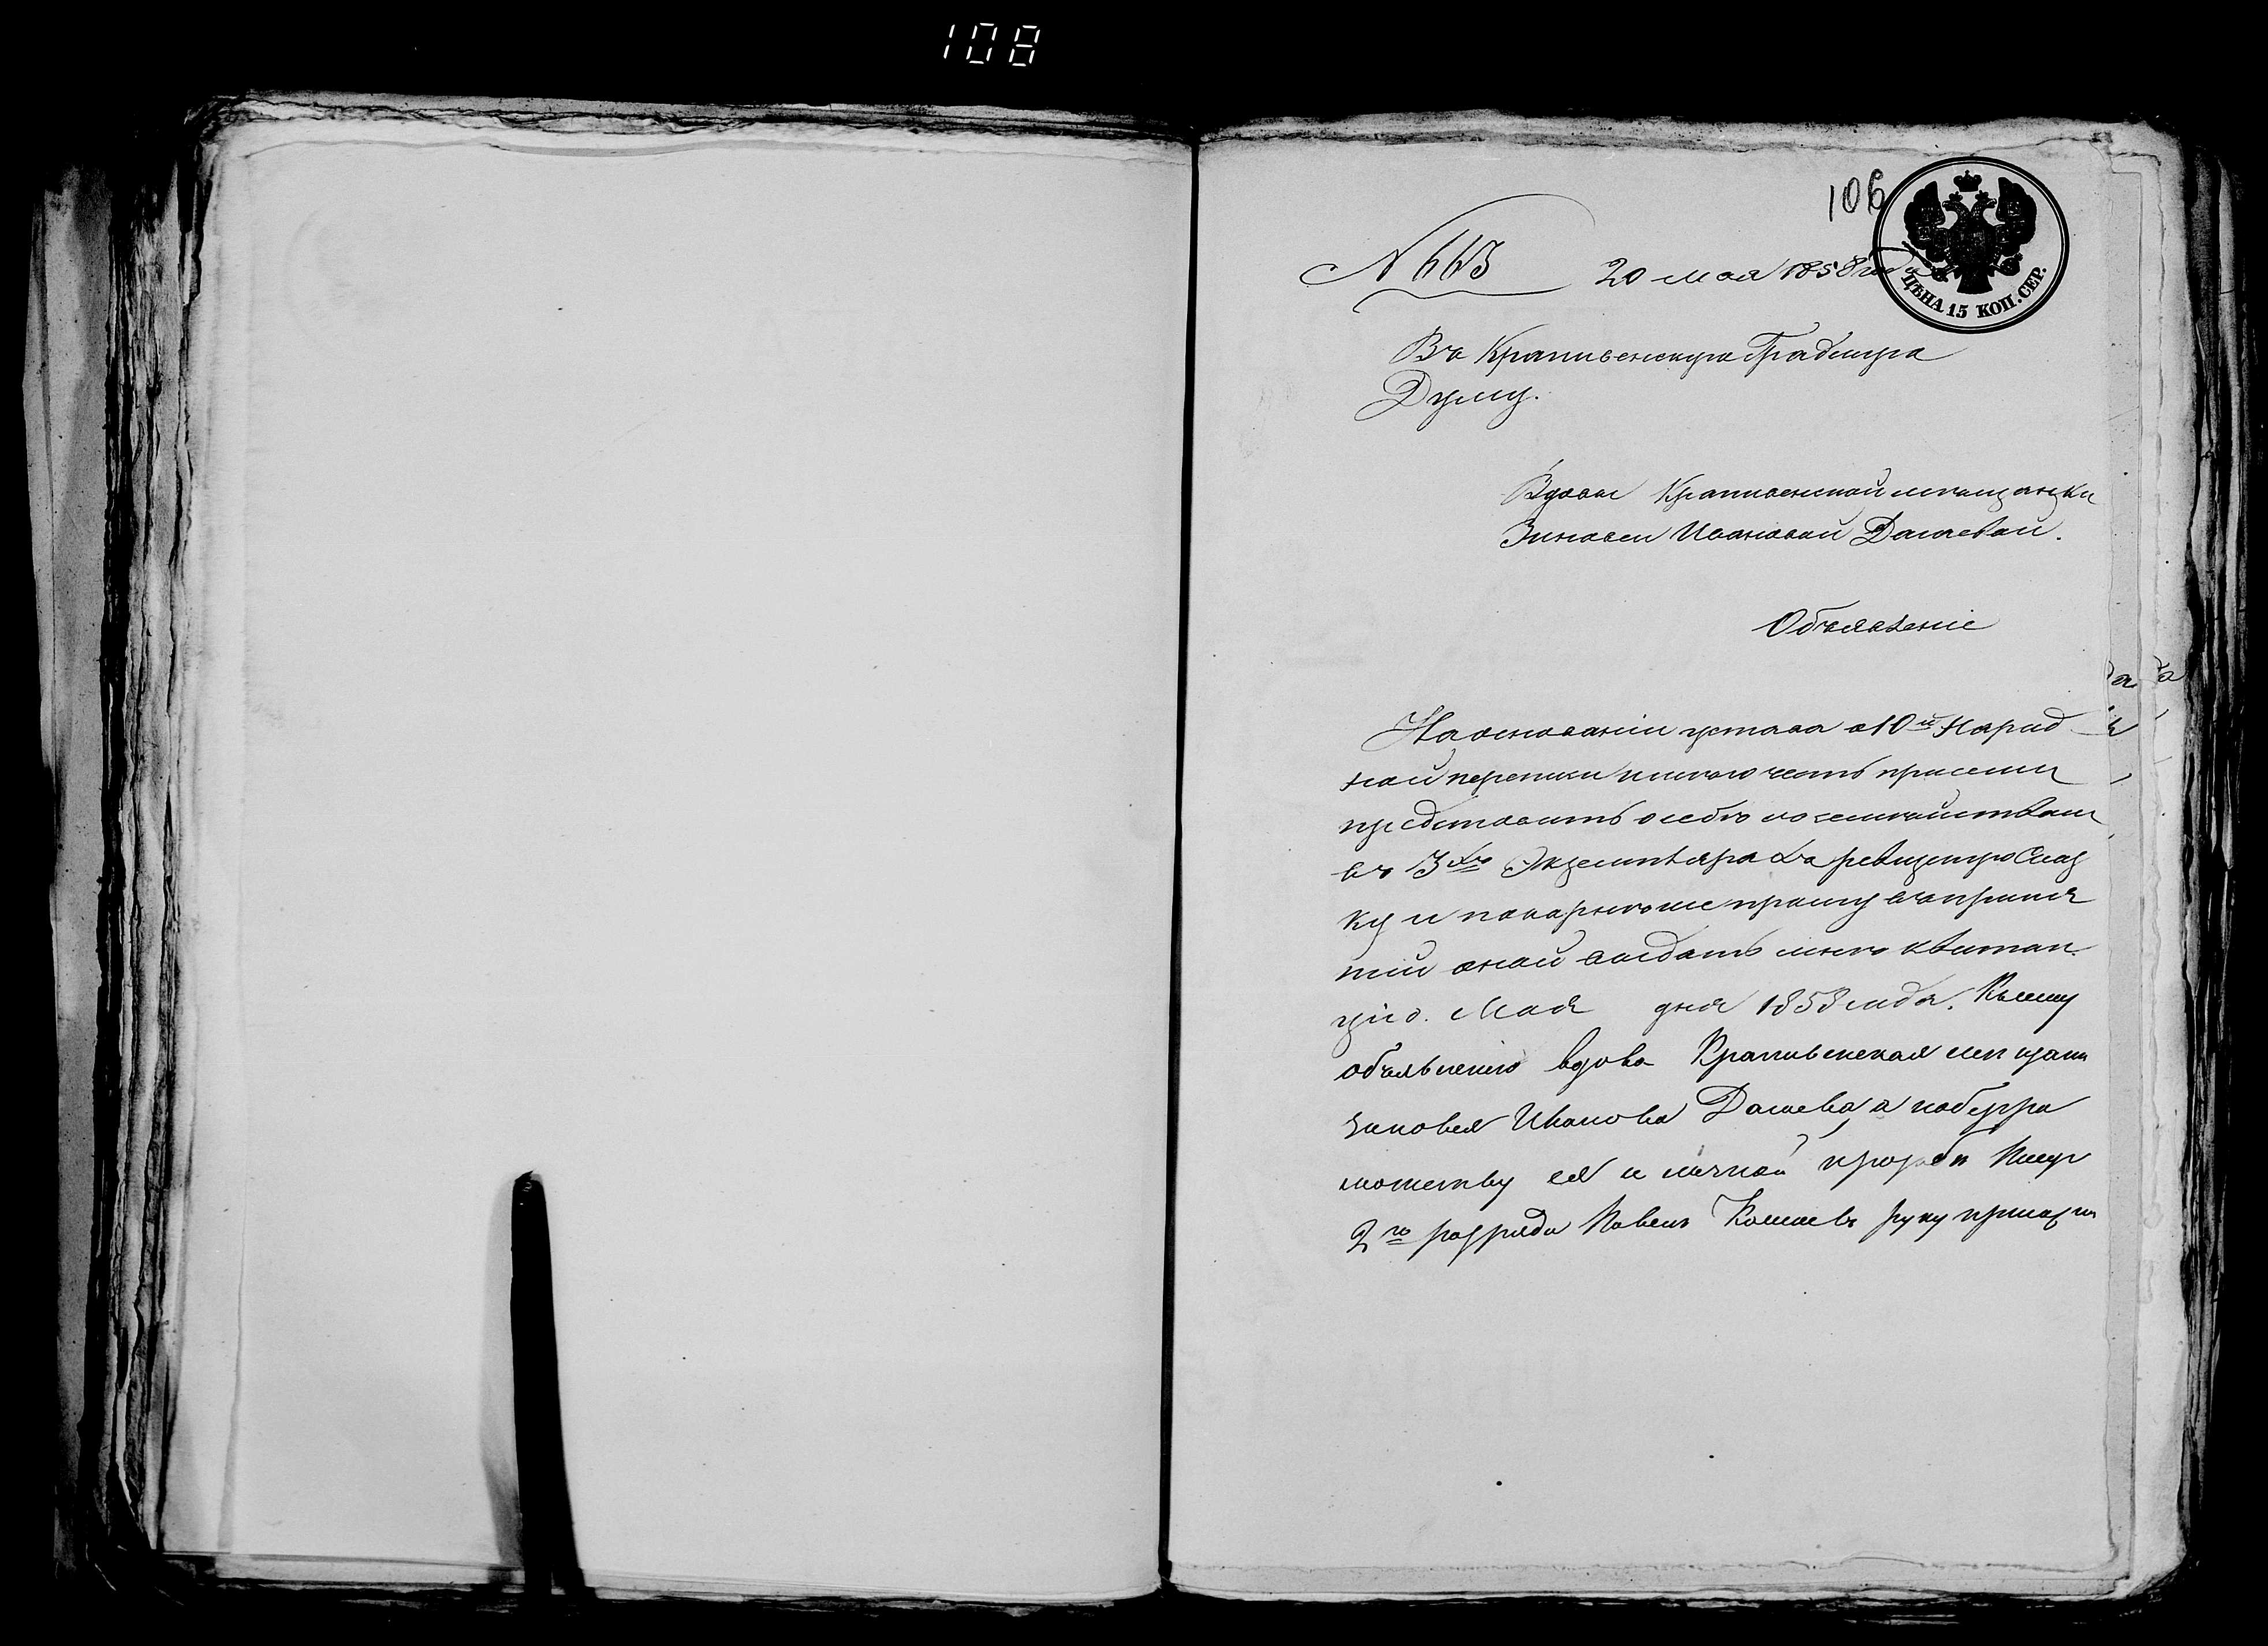 108
106
ЦѢНА 15 КОП. СЕР.
N 663 20 мая 1858 года
Въ Крапивенскую Градскую
Думу.
Вдовы Крапивенской мещанки
Зиновеи Ивановой Дашевой.
Объявленіе
На основаніи устава о 10й народ
ной переписи имею честь при семъ
представить о себѣ и о семействѣ моемъ
въ 3хъ Экземплярахъ ревизскую Сказ
ку и покорнейше прошу въ приня
тіи оной выдать мнѣ квитан
цію. Мая дня 1858 года. Къ сему
объявленію вдова Крапивенская мещанка
Зиновея Иванова Дашева, а по безгра
мотству ея и личной прозьбѣ Писецъ
2го розряда Павелъ руку приложилъ